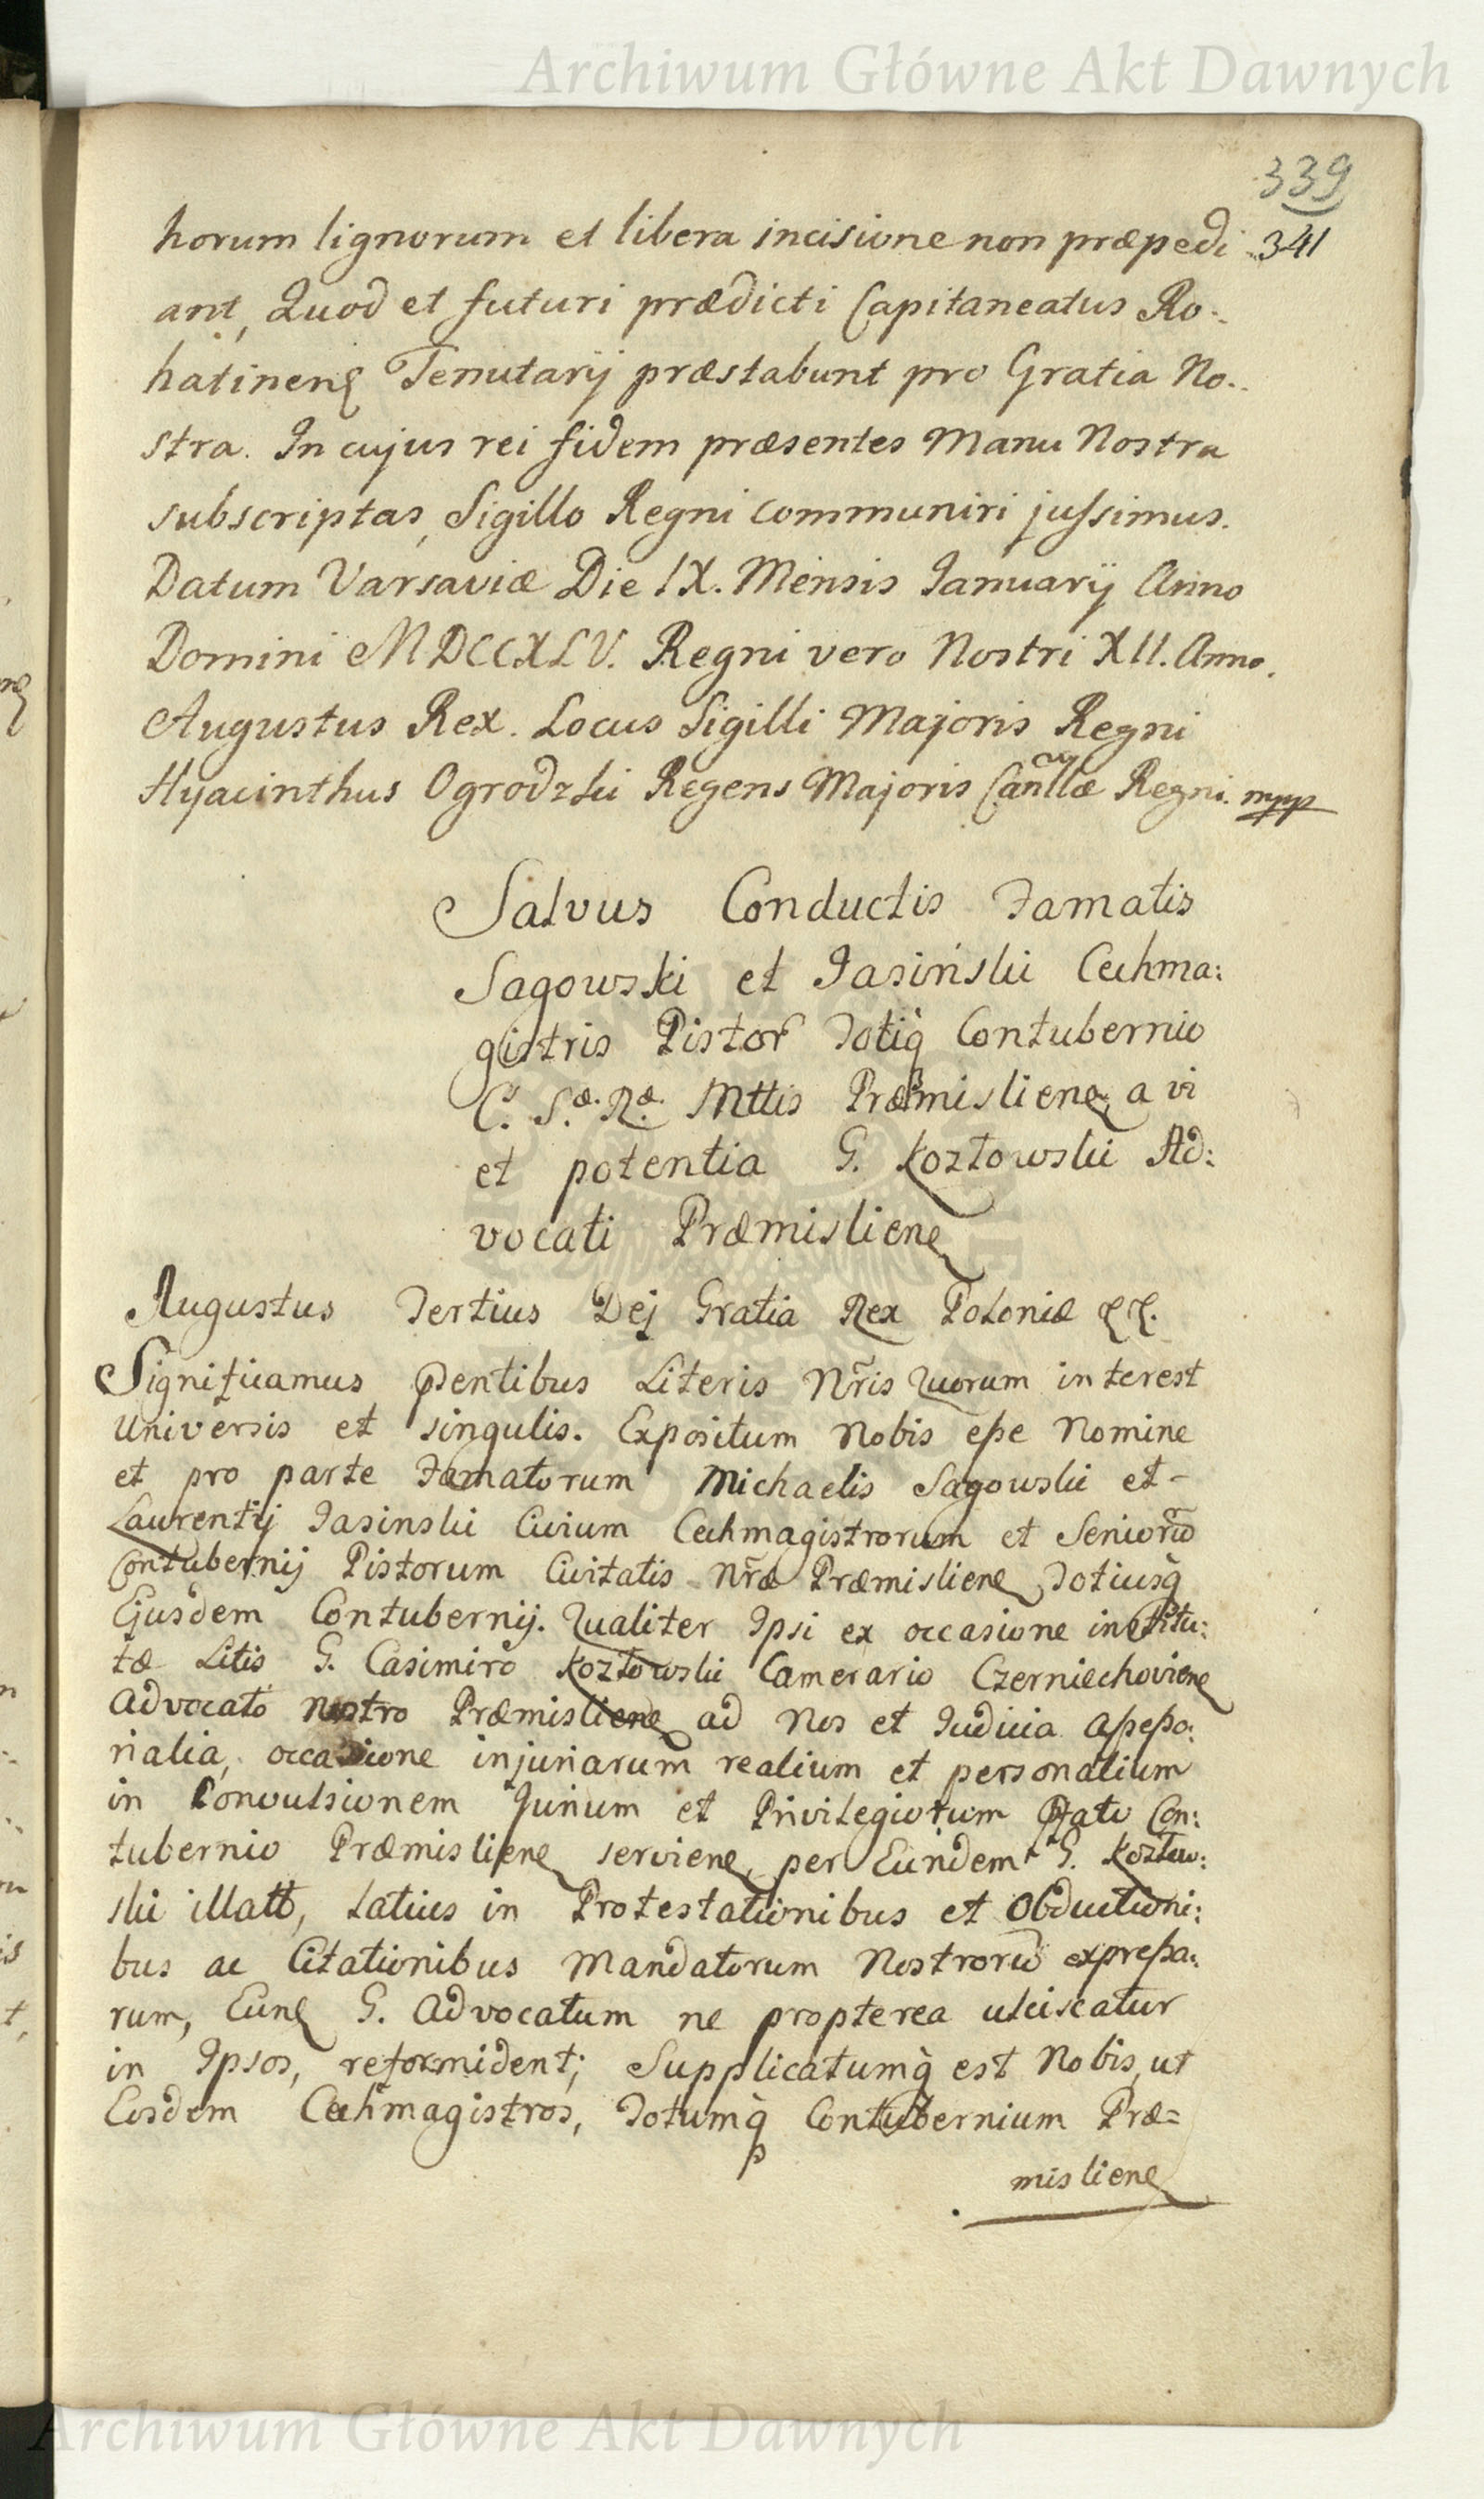 Archiwum Główne Akt Dawnych
339
341
horum lignorum et libera incisione non præpedi
ant, Quod et futuri prædicti Capitaneatus Ro-
hatinenς Tenutarij præstabunt pro Gratia No-
stra. In cujus rei fidem præsentes Manu Nostra
subscriptas, Sigillo Regni communiri jussimus.
Datum Varsaviæ Die IX. Mensis Januarij Anno
Domini MDCCXLV. Regni vero Nostri XII. Anno.
Augustus Rex. Locus Sigilli Majoris Regni
Hyacinthus Ogrodzki Regens Majoris Canllæ Regni. mpp
Salvus Conductis Famatis
Sagowski et Jasiński Cechma:
gistris Pistor Totiq̀ Contubernio
C. Sæ. Ræ. Mttis Præmislienς, a vi
et potentia G. Kozłowski Ad:
vocati Præmislienς
Augustus Tertius Dej Gratia Rex Poloniæ &&.
Significamus pentibus Literis Nr̃is Quorum interest
Universis et singulis. Expositum Nobis eße Nomine
et pro parte Famatorum Michaelis Sagowski et-
Laurentij Jasinski Civium Cechmagistrorum et Seniorũ
Contubernij Pistorum Civitatis Nr̃æ Præmislienς Totiusq̀
Ejusdem Contubernij. Qualiter Ipsi ex occasione institu:
tæ Litis G. Casimiro Kozłowski Camerario Czerniechovienς
Advocato Nostro Præmislienς ad Nos et Judicia Aßeßo:
rialia, occasione injuriarum realium et personalium
in Convulsionem Jurium et Privilegiorum Pfato Con:
tubernio Præmislienς servienς, per Eundem G. Kozłow:
ski illatt, Latius in Protestationibus et Obductioni:
bus ac Citationibus Mandatorum Nostrorũ expreßa:
rum, Eunς G. Advocatum ne propterea ulciscatur
in Ipsos, reformident; Supplicatumq̀ est Nobis, ut
Eosdem Cechmagistros, Totumq̀ Contubernium Præ=
mislienς
Archiwum Główne Akt Dawnych